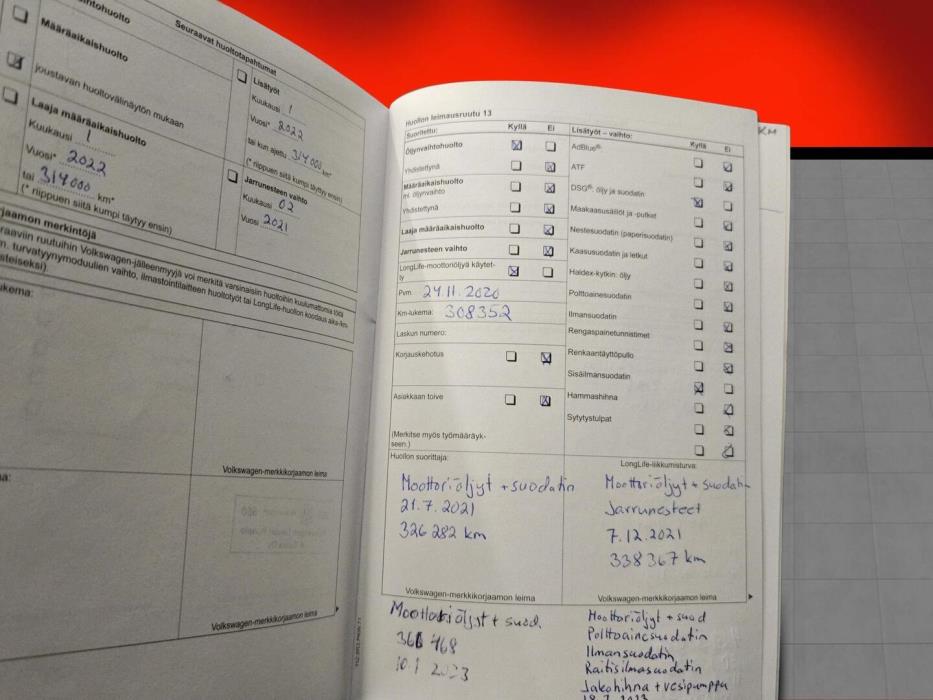 Määräaikaishuolto
joustavan huoltovälinäytön mukaan
Laaja määräaikaishuolto
Kuukausi 1
Vuosi* 2022
tai 314000 km*
(* riippuen siitä kumpi täytyy ensin)
Seuraavat huoltotapahtumat
Lisätyöt
Kuukausi 1
Vuosi* 2022
tai kun ajettu 314000 km*
(* riippuen siitä kumpi täyttyy ensin)
Jarrunesteen vaihto
Kuukausi 02
Vuosi 2021
merkintöjä
ruutuihin Volkswagen-jälleenmyyjä voi merkitä varsinaisiin huoltoihin kuulumattomia töitä
turvatyynymoduulien vaihto, ilmastointilaitteen huoltotyöt tai LongLife-huollon koodaus
Volkswagen-merkkikorjaamon leima
Volkswagen-merkkikorjaamon leima
Huollon leimausruutu 13
Suoritettu: Kyllä Ei
Öljynvaihtohuolto
Yhdistettynä
Määräaikaishuolto
ml. öljynvaihto
Yhdistettynä
Laaja määräaikaishuolto
Jarrunesteen vaihto
LongLife-moottoriöljyä käytet-
ty
Pvm. 24.11.2020
Km-lukema: 308352
Laskun numero:
Korjauskehotus
Asiakkaan toive
(Merkitse myös työmääräyk-
seen.)
Lisätyöt – vaihto: Kyllä Ei
AdBlue®
ATF
DSG®: öljy ja suodatin
Maakaasusäiliöt ja -putket
Nestesuodatin (paperisuodatin)
Kaasusuodatin ja letkut
Haldex-kytkin: öljy
Polttoainesuodatin
Ilmansuodatin
Rengaspainetunnistimet
Renkaantäyttöpullo
Sisäilmansuodatin
Hammashihna
Sytytystulpat
Huollon suorittaja:
Moottoriöljyt + suodatin
21.7.2021
326 282 km
Volkswagen-merkkikorjaamon leima
LongLife-liikkumisturva:
Moottoriöljyt + suodatin
Jarrunesteet
7.12.2021
338 367 km
Volkswagen-merkkikorjaamon leima
Moottoriöljyt + suod.
468
10.1 2023
Moottoriöljyt + suod
Polttoainesuodatin
Ilmansuodatin
Raitisilmasuodatin
Jakohihna + vesipumppu
KM